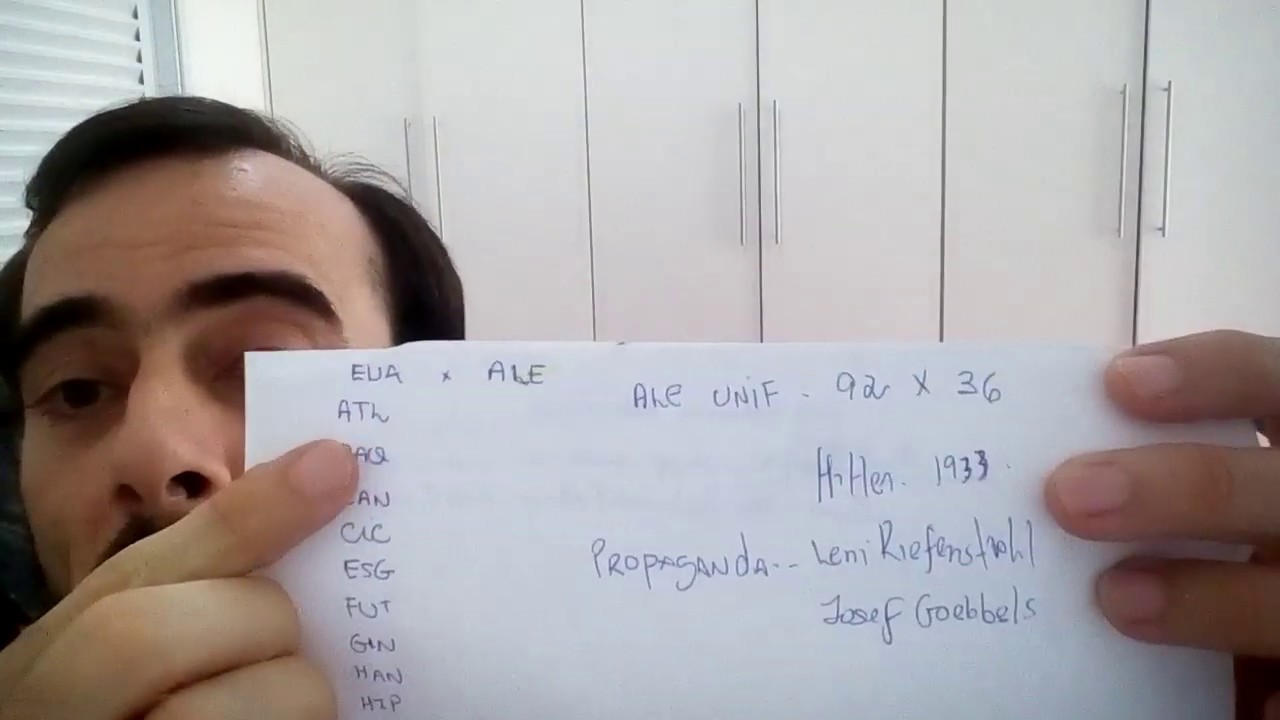 EUA x ALE
ATL
CIC
ESG
FUT
GIN
HAN
HIP
ALE UNIF - 92 X 36
Hitler. 1933.
PROPAGANDA -- Leni Riefenstrahl
Josef Goebbels